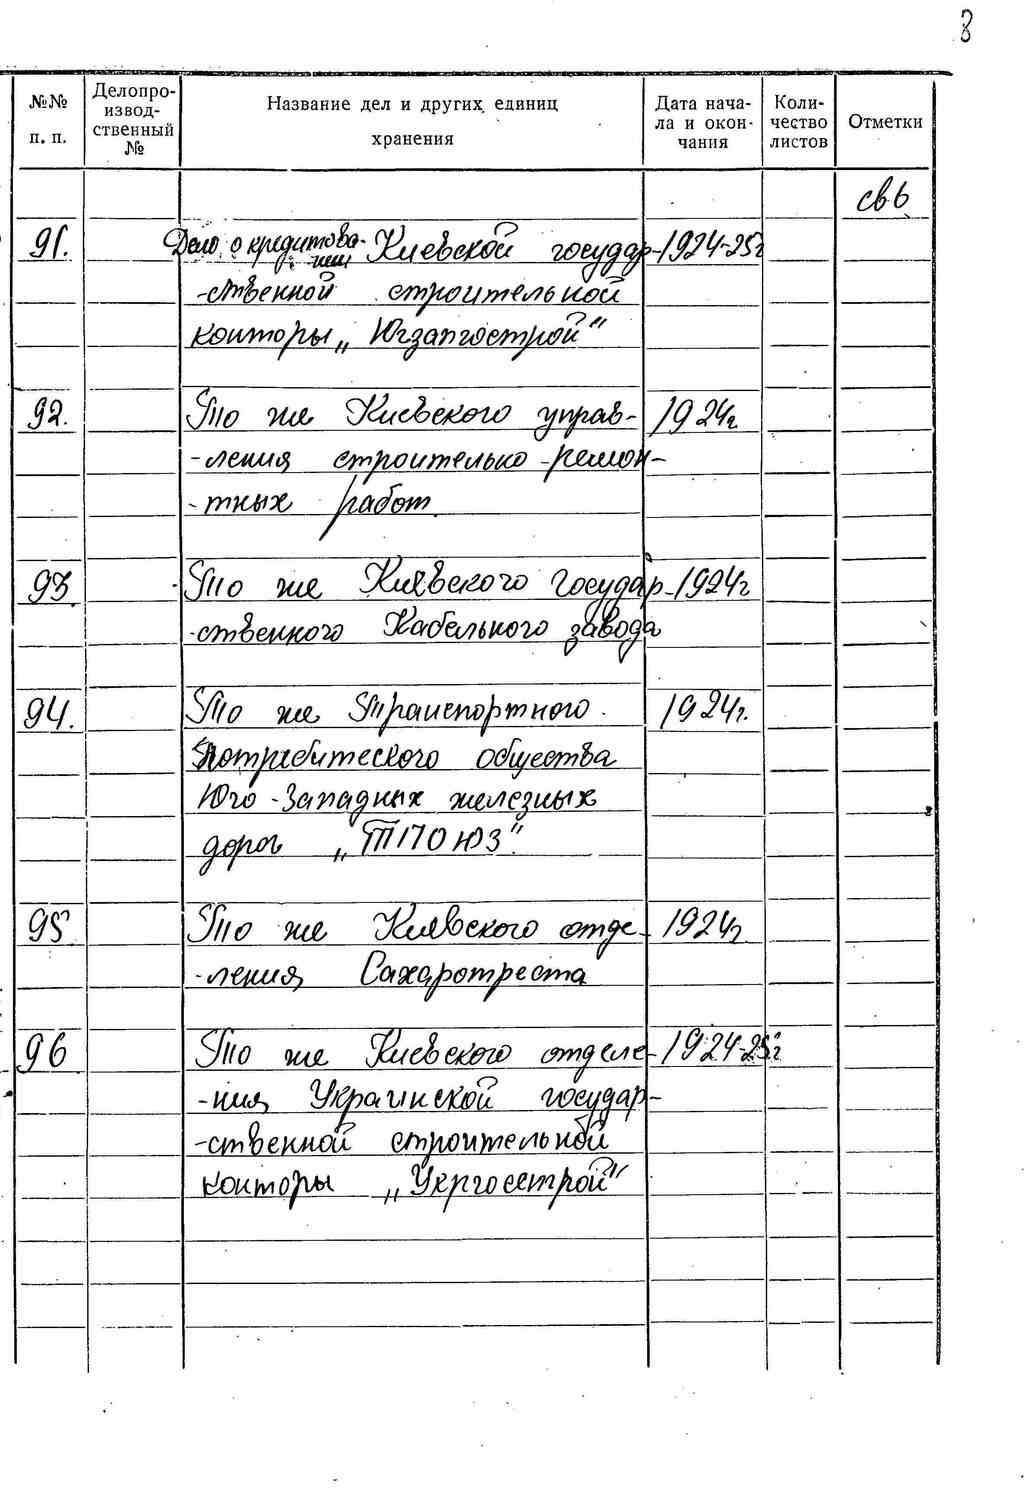 8
№№ п. п.
Делопро-
извод-
ственный
№
Название дел и других единиц
хранения
Дата нача-
ла и окон-
чания
Коли-
чество
листов
Отметки
св 6
91. Дело о кредитова- Киевской государ- 1924-25г
нии
-ственной строительной
конторы „Югзапгосстрой"
92. То же Киевского управ- 1924г
-ления строительно-ремон-
-тных работ.
93. То же Киевского государ- 1924г
-ственного Кабельного завода
94. То же Транспортного 1924г.
Потребительского общества
Юго-Западных железных
дорог „ТПОЮЗ".
95. То же Киевского отде- 1924г
-ления Сахаротреста
96 То же Киевского отделе- 1924-25г
-ния Украинской государ-
-ственной строительной
конторы „Укргосстрой"